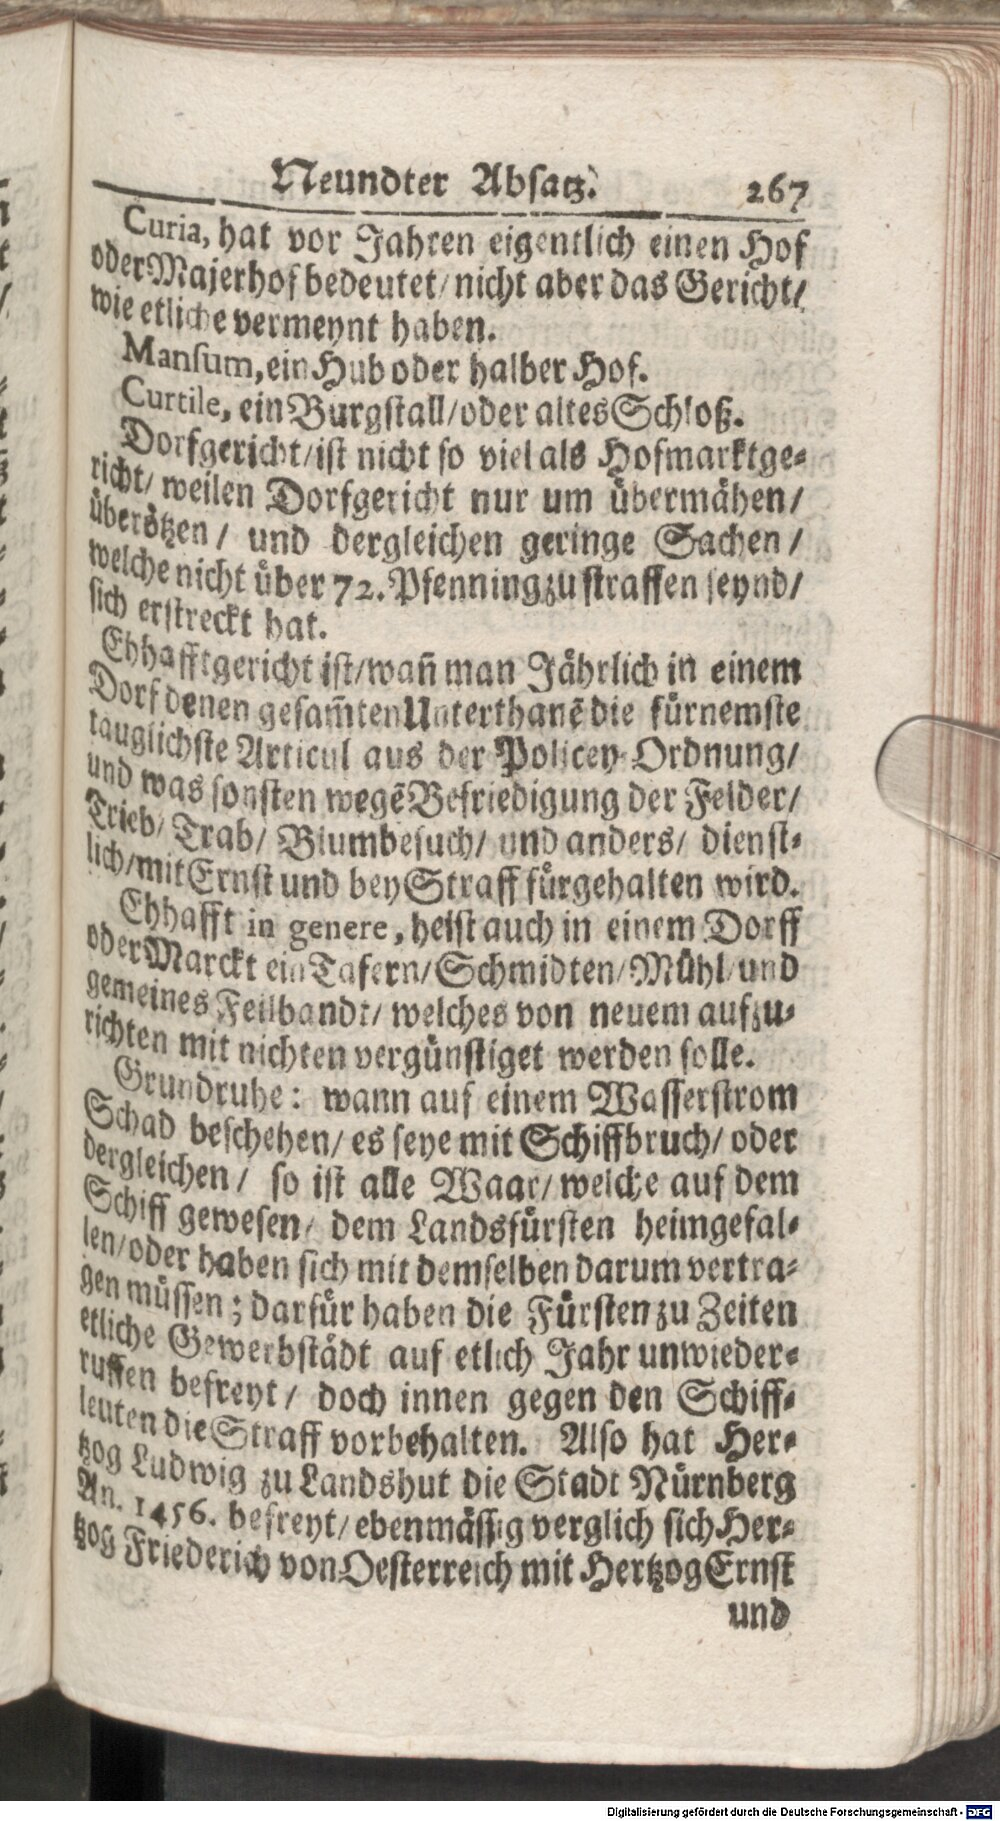 Neundter Absatz. 267
Curia, hat vor Jahren eigentlich einen Hof
oder Majerhof bedeutet / nicht aber das Gericht /
wie etliche vermeynt haben.
Mansum, ein Hub oder halber Hof.
Curtile, ein Burgstall / oder altes Schloß.
Dorfgericht / ist nicht so viel als Hofmarktge-
richt / weilen Dorfgericht nur um übermähen /
überötzen / und dergleichen geringe Sachen /
welche nicht über 72. Pfenning zu straffen seynd /
sich erstreckt hat.
Ehhafftgericht ist / wañ man Jährlich in einem
Dorf denen gesam̃ten Unterthanē die fürnemste
tauglichste Articul aus der Policey-Ordnung /
und was sonsten wegē Befriedigung der Felder /
Trieb / Trab / Blumbesuch / und anders / dienst-
lich / mit Ernst und bey Straff fürgehalten wird.
Ehhafft in genere, heist auch in einem Dorff
oder Marckt ein Tafern / Schmidten / Mühl / und
gemeines Feilbandt / welches von neuem aufzu-
richten mit nichten vergünstiget werden solle.
Grundruhe: wann auf einem Wasserstrom
Schad beschehen / es seye mit Schiffbruch / oder
dergleichen / so ist alle Waar / welche auf dem
Schiff gewesen / dem Landsfürsten heimgefal-
len / oder haben sich mit demselben darum vertra-
gen müssen; darfür haben die Fürsten zu Zeiten
etliche Gewerbstädt auf etlich Jahr unwieder-
ruffen befreyt / doch innen gegen den Schiff-
leuten die Straff vorbehalten. Also hat Her-
tzog Ludwig zu Landshut die Stadt Nürnberg
An. 1456. befreyt / ebenmässig verglich sich Her-
tzog Friederich von Oesterreich mit Hertzog Ernst
und
Digitalisierung gefördert durch die Deutsche Forschungsgemeinschaft - DFG